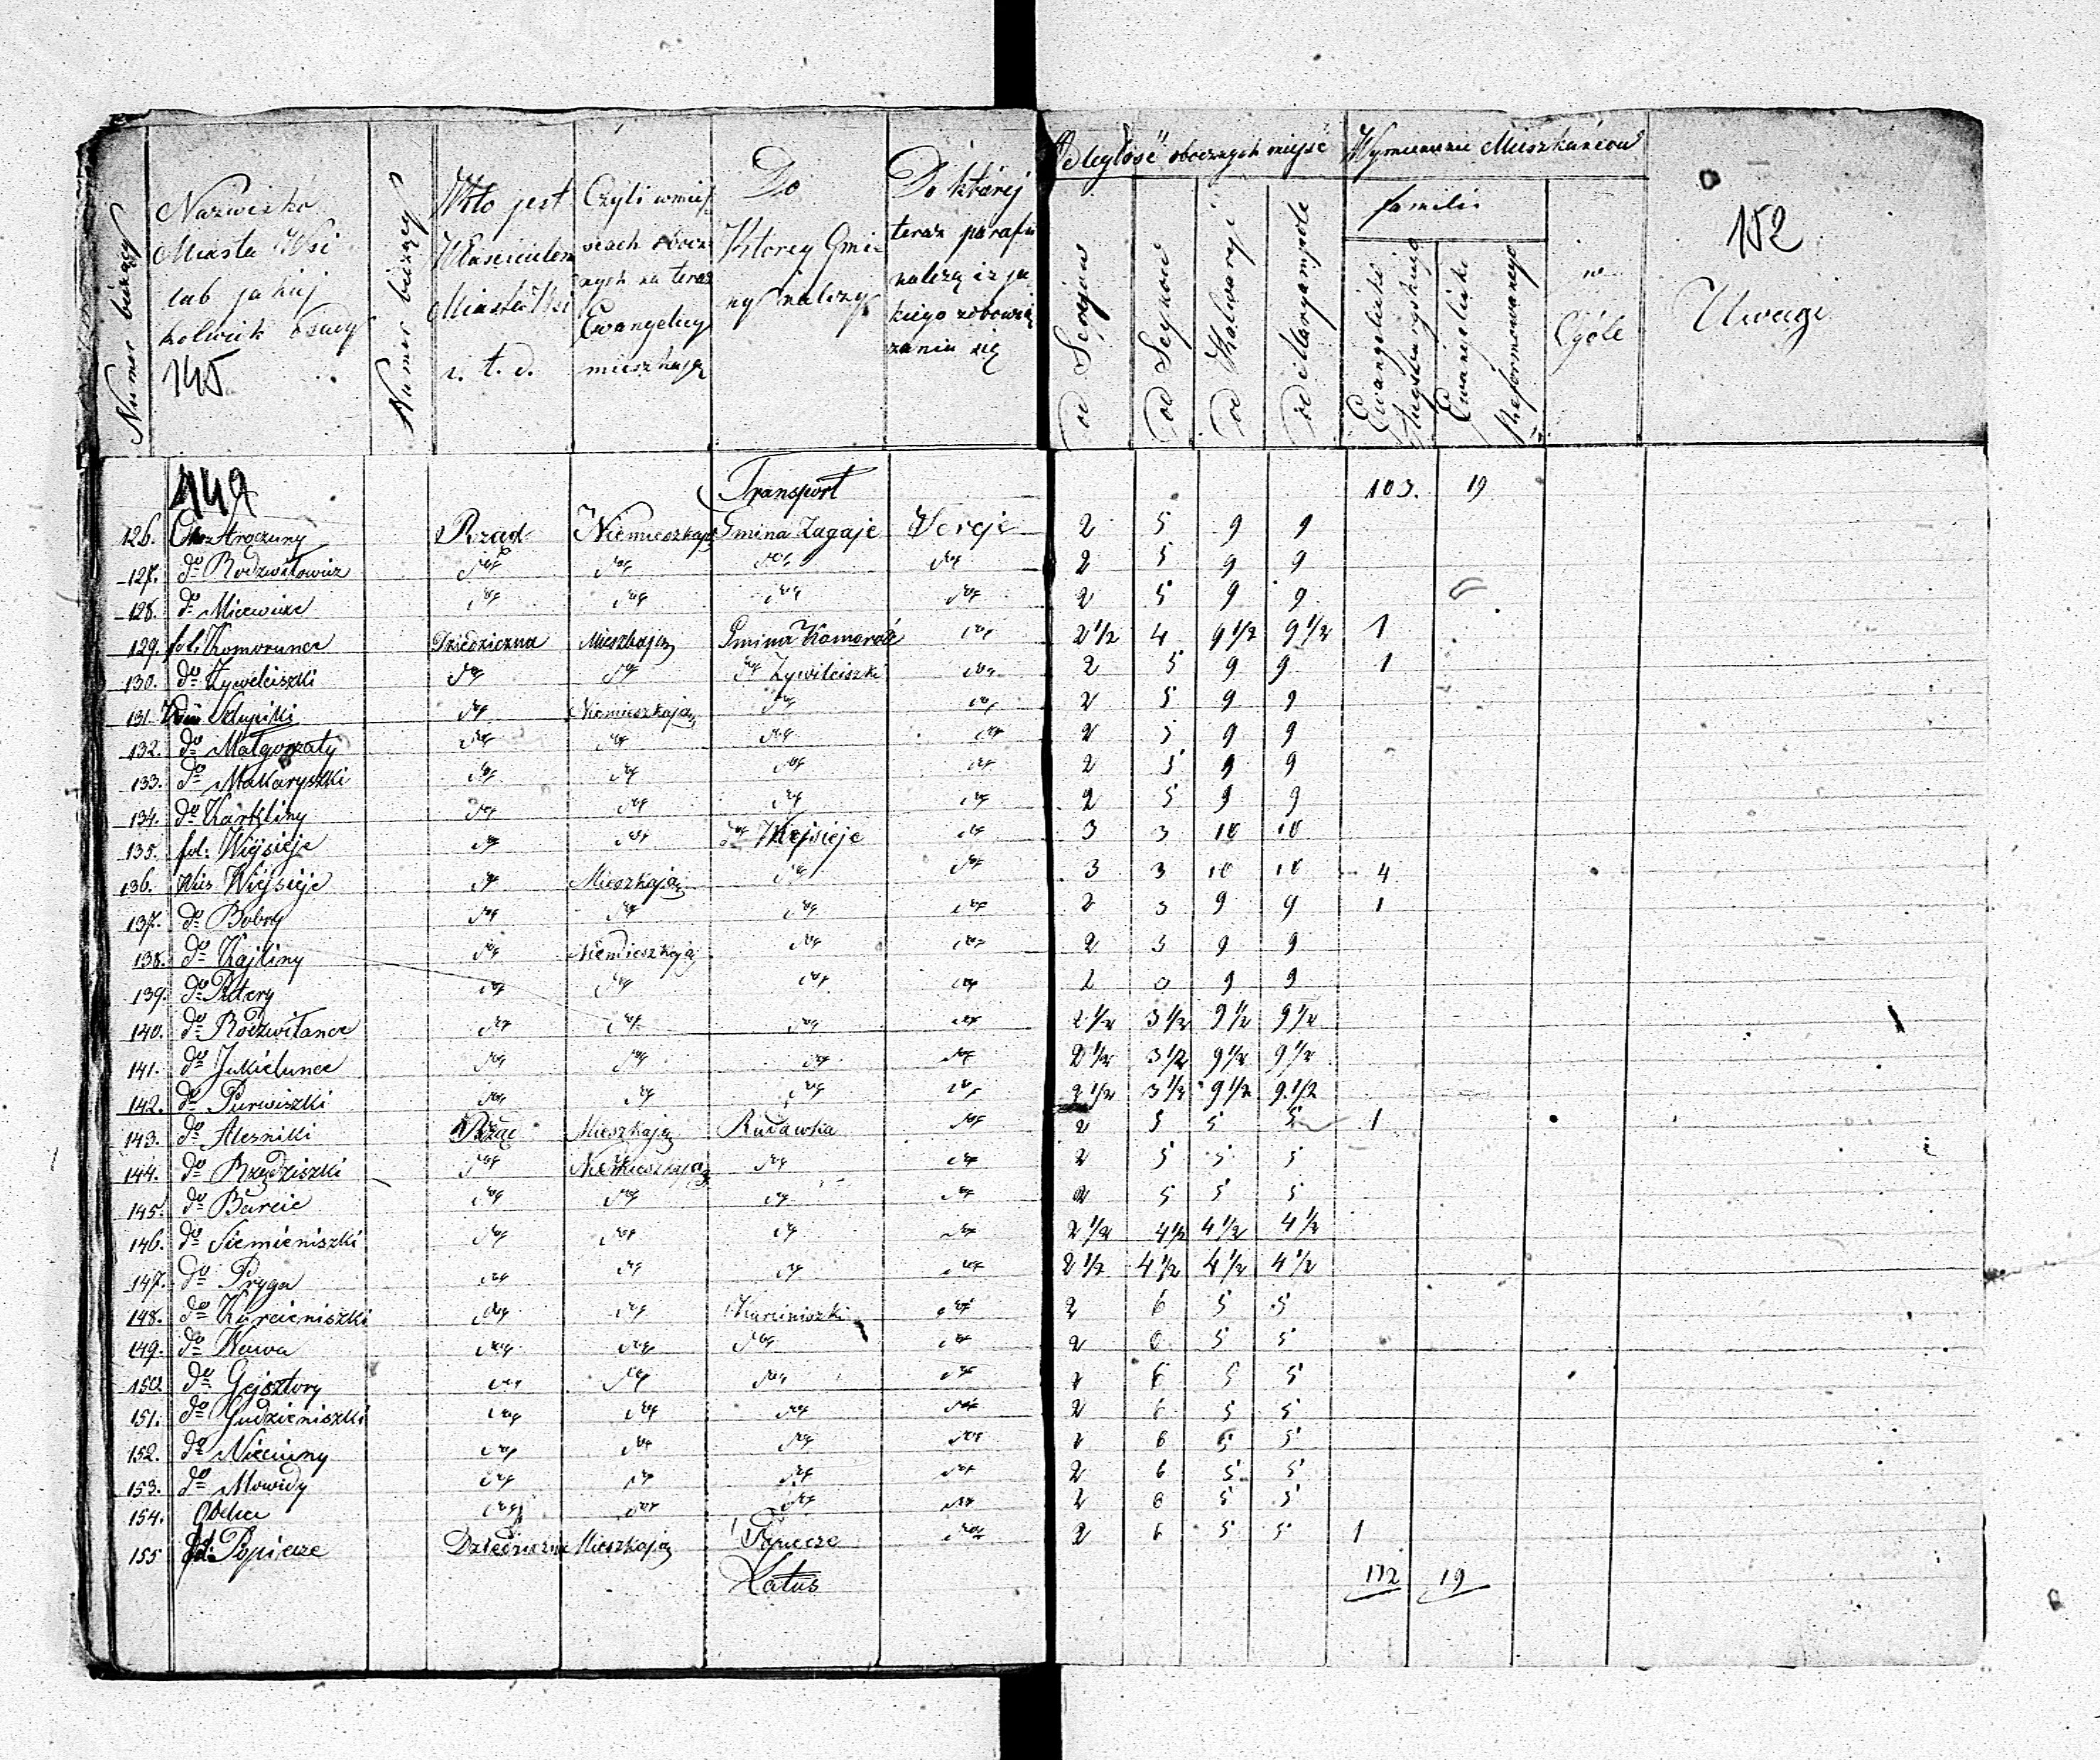 Numer bieżący
Nazwisko Miasta Wsi lub jakiej kolwiek Osady
145
Numer bieżący
Kto jest Właścicielem Miasta Wsi i. t. d.
Czyli w miejscach obocznych na teraz Ewangelicy mieszkają
Do Ktorey Gminy należy
Do której teraz parafii należą i z jakiego zobowiązania się
Odległość obocznych miejsc
od Serejow
od Seynow
od Kalwaryi
od Maryampola
Wymienienie Mieszkańcow
familii
Ewangelicko Augsburgskiego
Ewangelicko Reformowanego
w Ogóle
152
Uwagi
149 Transport 103. 19
126. Straczuny Rząd Niemieszkają Gmina Zagaje Sereje 2 5 9 9
127. do Rodzwiłowicz do do do do 2 5 9 9
128. do Micewicze do do do do 2 5 9 9
129. fol. Komorunce Dziedziczna Mieszkają Gmina Komorunce do 2 1/2 4 9 1/2 9 1/2 1
130. do Zywelciszki do do do Zywilciszki do 2 5 9 9 1
131. Wieś Słupitki do Niemieszkają do do 2 5 9 9
132. do Małgorzaty do do do do 2 5 9 9
133. do Makaryszki do do do do 2 5 9 9
134. do Karkliny do do do do 2 5 9 9
135. fol: Wiejsieje do do do Wiejsieje do 3 3 10 10
136. Wieś Wiejsieje do Mieszkają do do 3 3 10 10 4
137. do Bobry do do do do 2 3 9 9 1
138. do Kajliny do Niemieszkają do do 2 3 9 9
139. do Petery do do do do 2 9 9
140. do Rodzwiłance do do do do 2 1/2 3 1/2 9 1/2 9 1/2
141. do Jukielunce do do do do 2 1/2 3 1/2 9 1/2 9 1/2
142. do Purwiszki do do do do 2 1/2 3 1/2 9 1/2 9 1/2
143. do Aleśniki Rząd Mieszkają Rudawka do 2 5 5 5 1
144. do Brzędziszki do Niemieszkają do do 2 5 5 5
145. do Barcie do do do do 2 5 5 5
146. do Siemieniszki do do do do 2 1/2 4 1/2 4 1/2 4 1/2
147. do Pryga do do do do 2 1/2 4 1/2 4 1/2 4 1/2
148. do Kurcieniszki do do Kurciniszki do 2 6 5 5
149. do Wawa do do do do 2 6 5 5
150 do Gejsztory do do do do 2 6 5 5
151. do Gudzieniszki do do do do 2 6 5 5
152. do Nieciuny do do do do 2 6 5 5
153. do Mowidy do do do do 2 6 5 5
154. Obelica do do do do 2 6 5 5
155 fol: Popiecze Dziedziczna Mieszkają Popiecze do 2 6 5 5 1
Latus 112 19